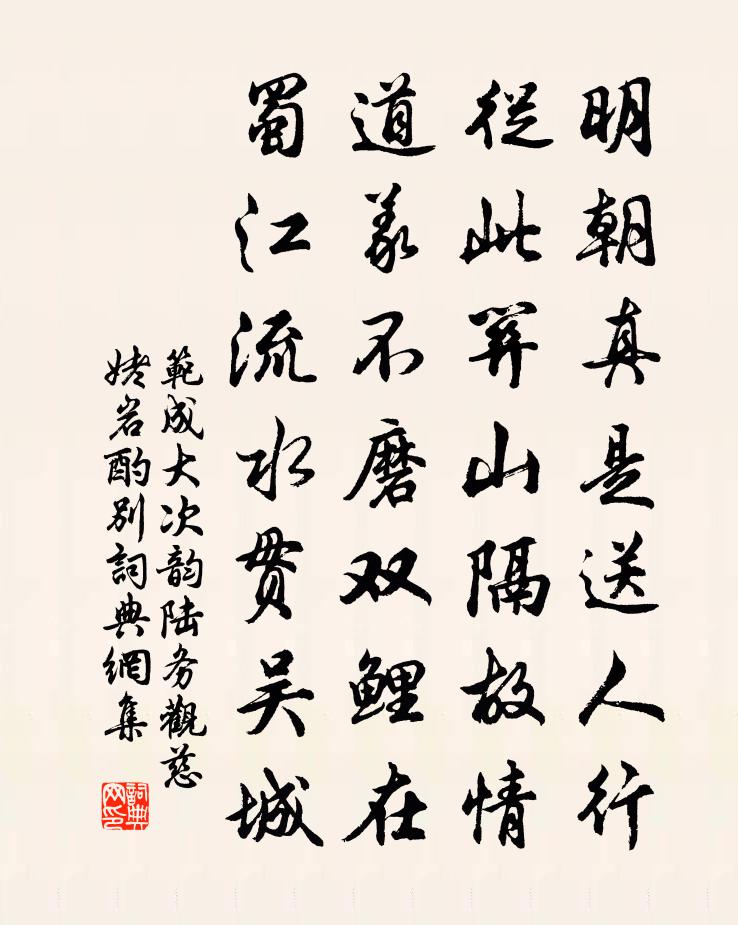 明朝真是送人行
從此関山隔故情
道義不磨双鯉在
蜀江流水貫吴城
範成大次韵陆务觀慈
姥岩酌别詞典網集
詞典
网印